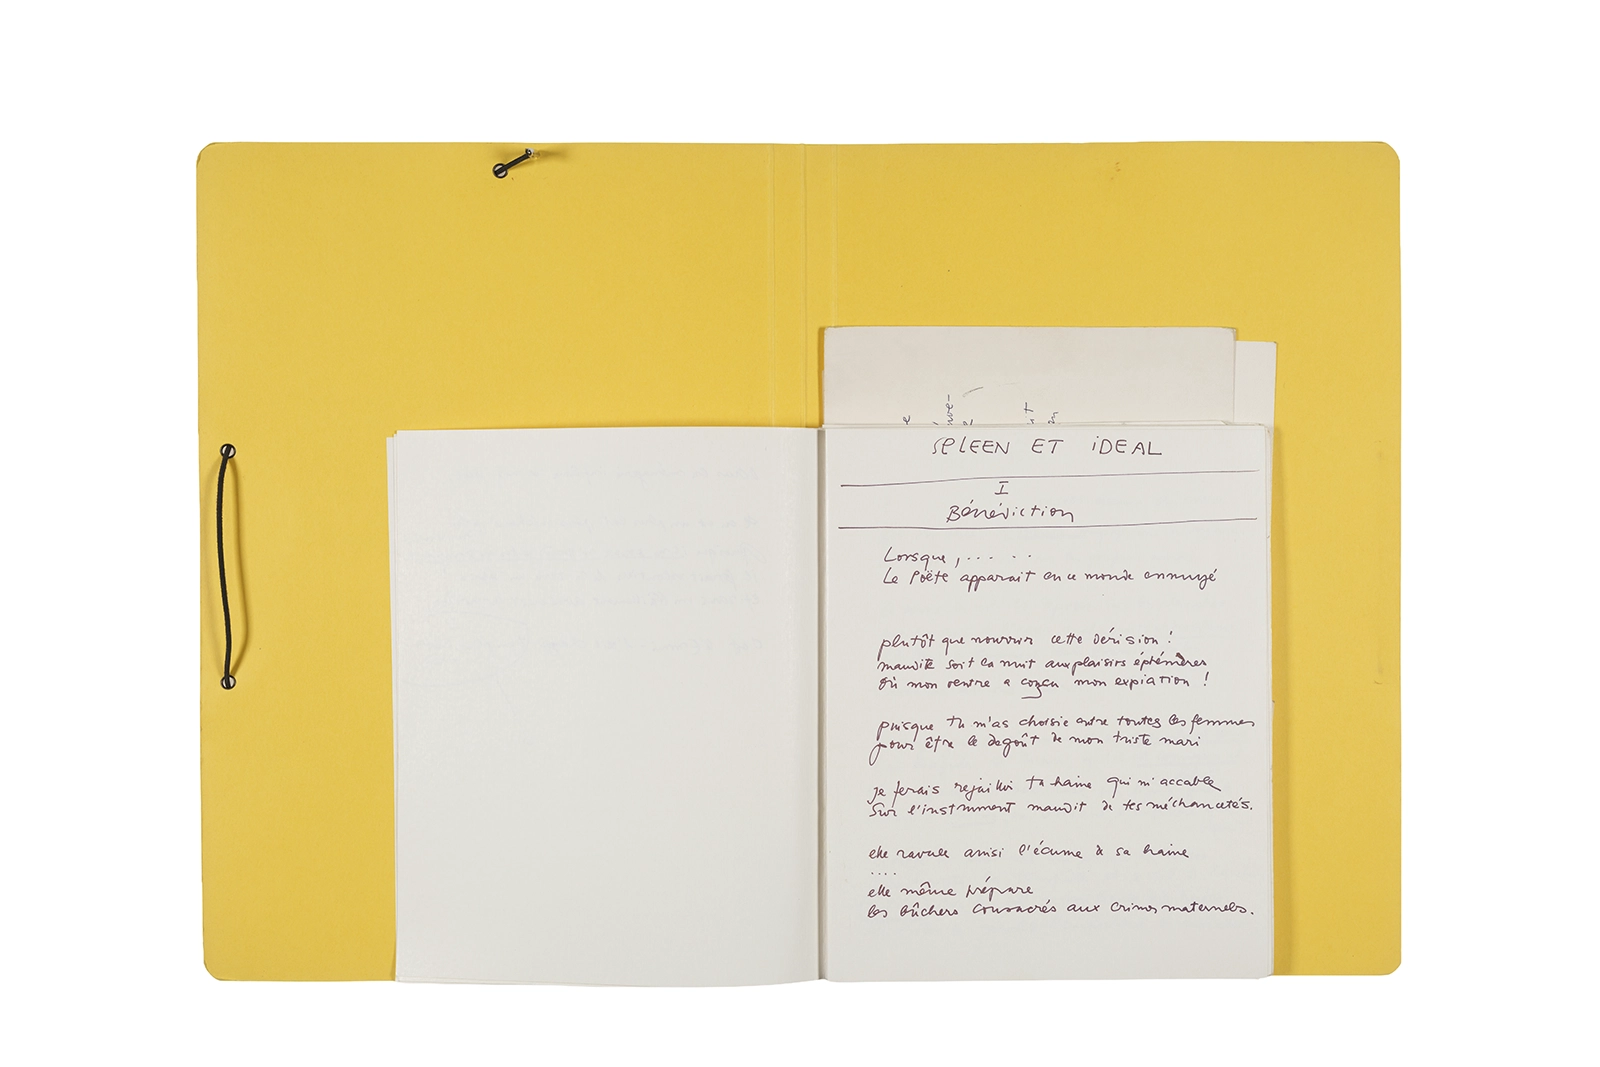 SPLEEN ET iDEAL
I
Bénédiction
Lorsque, .....
Le Poëte apparait en ce monde ennuyé
plutôt que nourrir cette dérision !
maudite soit la nuit aux plaisirs éphémères
Où mon ventre a conçu mon expiation !
puisque tu m'as choisie entre toutes les femmes
pour être le degoût de mon triste mari
je ferais rejaillir ta haine qui m'accable
Sur l'instrument maudit de tes méchancetés.
elle ravale ainsi l'écume de sa haine
....
elle même prépare
les bûchers consacrés aux crimes maternels.